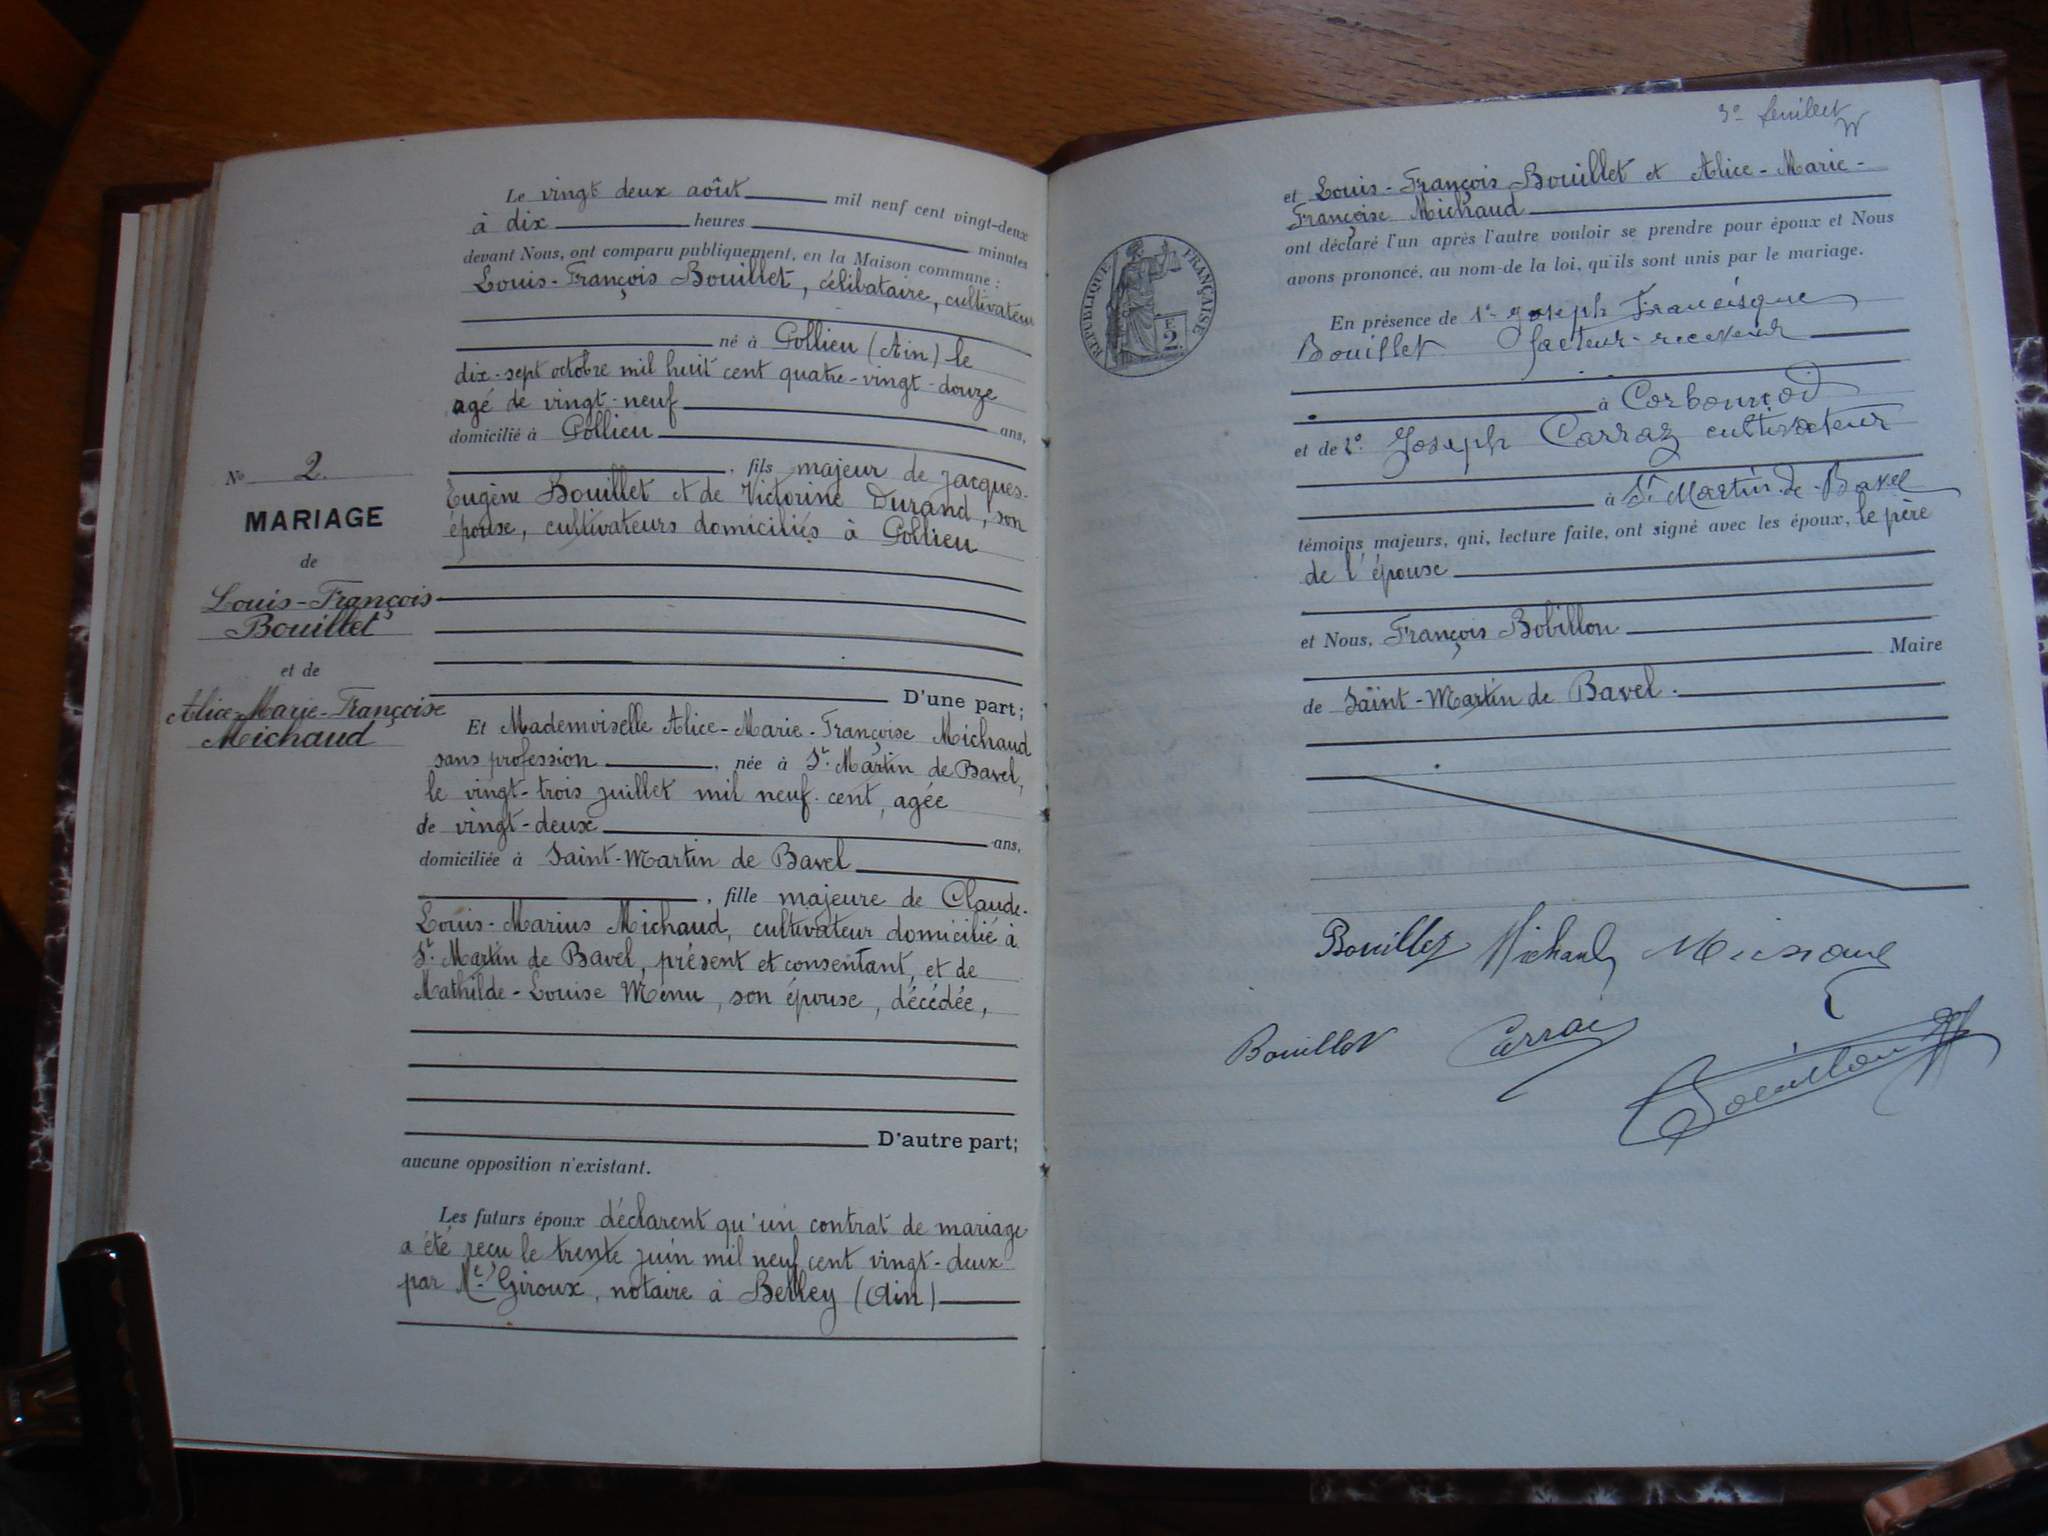 Le vingt deux août mil neuf cent vingt-deux
à dix heures minutes
devant Nous, ont comparu publiquement, en la Maison commune :
Louis-François Bouillet, célibataire, cultivateur
né à Pollieu (Ain) le
dix-sept octobre mil huit cent quatre-vingt-douze
agé de vingt-neuf ans,
domicilié à Pollieu
, fils majeur de Jacques-
Eugène Bouillet et de Victorine Durand, son
épouse, cultivateurs domiciliés à Pollieu
D'une part;
No 2.
MARIAGE
de
Louis-François
Bouillet
et de
Alice-Marie-Françoise
Michaud
Et Mademoiselle Alice-Marie-Françoise Michaud
sans profession, née à St. Martin de Bavel,
le vingt-trois juillet mil neuf cent, agée
de vingt-deux ans,
domiciliée à Saint-Martin de Bavel
, fille majeure de Claude-
Louis-Marius Michaud, cultivateur domicilié à
St. Martin de Bavel, présent et consentant, et de
Mathilde-Louise Menu, son épouse, décédée,
D'autre part;
aucune opposition n'existant.
Les futurs époux déclarent qu'un contrat de mariage
a été reçu le trente juin mil neuf cent vingt-deux
par Me Giroux, notaire à Belley (Ain)
3e feuillet
et Louis-François Bouillet et Alice-Marie-
Françoise Michaud
ont déclaré l'un après l'autre vouloir se prendre pour époux et Nous
avons prononcé, au nom de la loi, qu'ils sont unis par le mariage.
RÉPUBLIQUE FRANÇAISE
E
2.
En présence de 1° Joseph Francisque
Bouillet facteur-receveur
à Corbonod
et de 2° Joseph Carraz cultivateur
à St Martin-de-Bavel
témoins majeurs, qui, lecture faite, ont signé avec les époux, le père
de l'épouse
et Nous, François Bobillon
Maire
de Saint-Martin de Bavel.
Bouillet Michaud Michaud
Bouillet Carraz
Bobillon